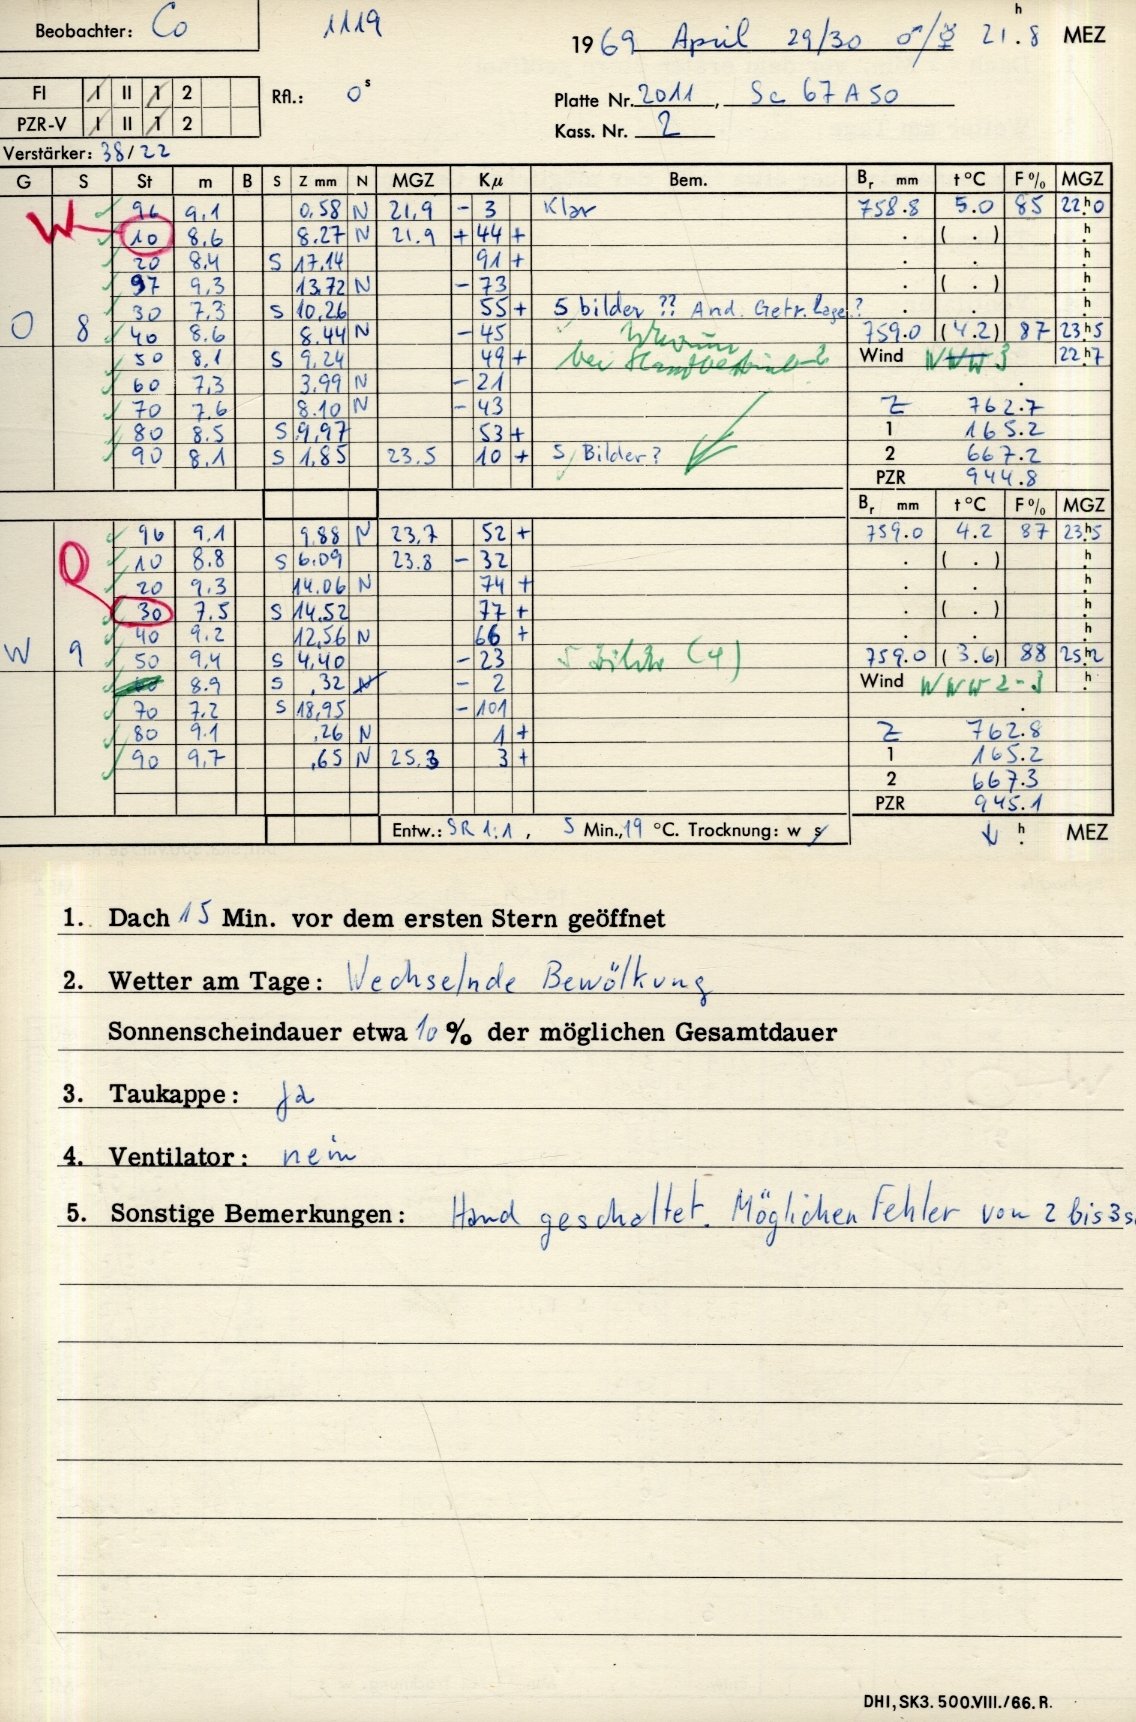 Beobachter: Co 1119 1969 April 29/30 ♂/☿ 21.8 h MEZ
FI I II 1 2 Rfl.: 0 s Platte Nr. 2011, Sc 67 A 50
PZR-V I II 1 2 Kass. Nr. 2
Verstärker: 38/22
G S St m B S Z mm N MGZ Kμ Bem. Br mm t °C F % MGZ
96 9,1 0,58 N 21,9 - 3 Klar 758.8 5.0 85 22h0
W 10 8.6 8.27 N 21.9 + 44 + . ( . ) h
20 8,4 S 17,14 91 + . . h
97 9,3 13,72 N - 73 . ( . ) h
30 7,3 S 10,26 55 + 5 bilder ?? And. Getr. Lage? . . h
O 8 40 8.6 8.44 N - 45 Warum 759.0 (4.2) 87 23h5
50 8,1 S 9,24 49 + bei Wind 22h7
60 7,3 3,99 N - 21
70 7.6 8.10 N - 43 Z 762.7
80 8.5 S 9,97 53 + 1 165.2
90 8.1 S 1,85 23.5 10 + 5 Bilder? 2 667.2
PZR 944.8
Br mm t °C F % MGZ
96 9,1 9,88 N 23,7 52 + 759.0 4.2 87 23h5
O 10 8.8 S 6.09 23.8 - 32 . ( . ) h
20 9,3 14.06 N 74 + . . h
30 7,5 S 14,52 77 + . ( . ) h
40 9,2 12,56 N 66 + . . h
W 9 50 9,4 S 4,40 - 23 5 Bilder (4) 759.0 (3.6) 88 25h2
60 8.9 S ,32 N - 2 Wind WNW 2-3 h
70 7.2 S 18,95 - 101
80 9.1 ,26 N 1 + Z 762.8
90 9,7 ,65 N 25,3 3 + 1 165.2
2 667.3
PZR 945.1
Entw.: SR 1:1, 5 Min., 19 °C. Trocknung: w s ↓ h MEZ
1. Dach 15 Min. vor dem ersten Stern geöffnet
2. Wetter am Tage: Wechselnde Bewölkung
Sonnenscheindauer etwa 10 % der möglichen Gesamtdauer
3. Taukappe: ja
4. Ventilator: nein
5. Sonstige Bemerkungen: Hand geschaltet. Möglichen Fehler von 2 bis 3 s
DHI, SK3. 500.VIII./66. R.